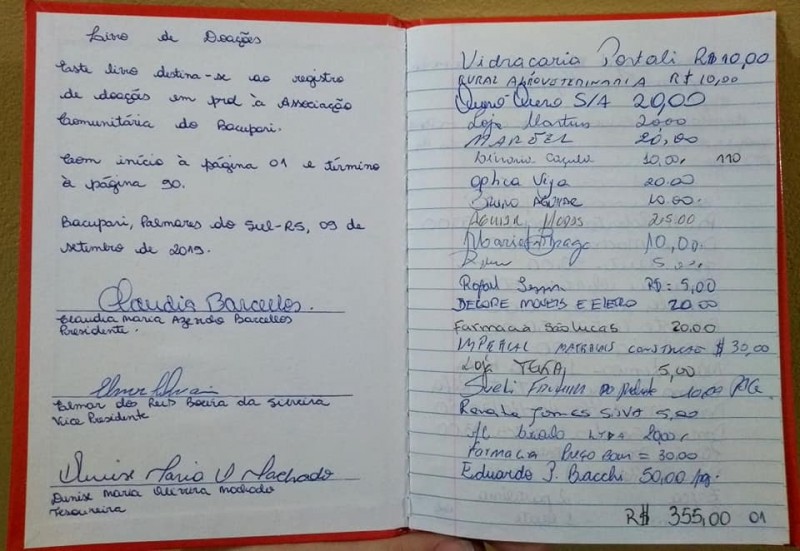 Livro de Doações
Este livro destina-se ao registro
de doações em prol à Associação
Comunitária do Bacupari.
Com início à página 01 e término
à página 90.
Bacupari, Palmares do Sul-RS, 09 de
setembro de 2019.
Claudia Barcellos.
Claudia Maria Azevedo Barcellos
Presidente.
Elmar dos Reis Boeira da Silveira
Vice Presidente
Denise Maria O Machado
Denise Maria Oliveira Machado
Tesoureira
Vidracaria Portali R$ 10,00
RURAL AGROVETERINARIA R$ 10,00
Quero-Quero S/A 20,00
Loja Martins 2000
20,00
10,00, 110
Optica Viza 20.00
Bruno Aguiar 10.00.
Aguiar 25.00
Maria Thiago 10,00.
5,00
Rafael R$: 5,00
DECORE MOVEIS E ELETRO 20.00
Farmacia São Lucas 20,00
IMPERIAL MATERIAIS CONSTRUÇÃO $ 30,00
Loja 5,00
Sueli 10,00
Renata Gomes Silva 5,00
LTDA 20,00
Farmacia Preço Bom = 30.00
Eduardo P. Bacchi 50,00 pg.
R$ 355,00 01